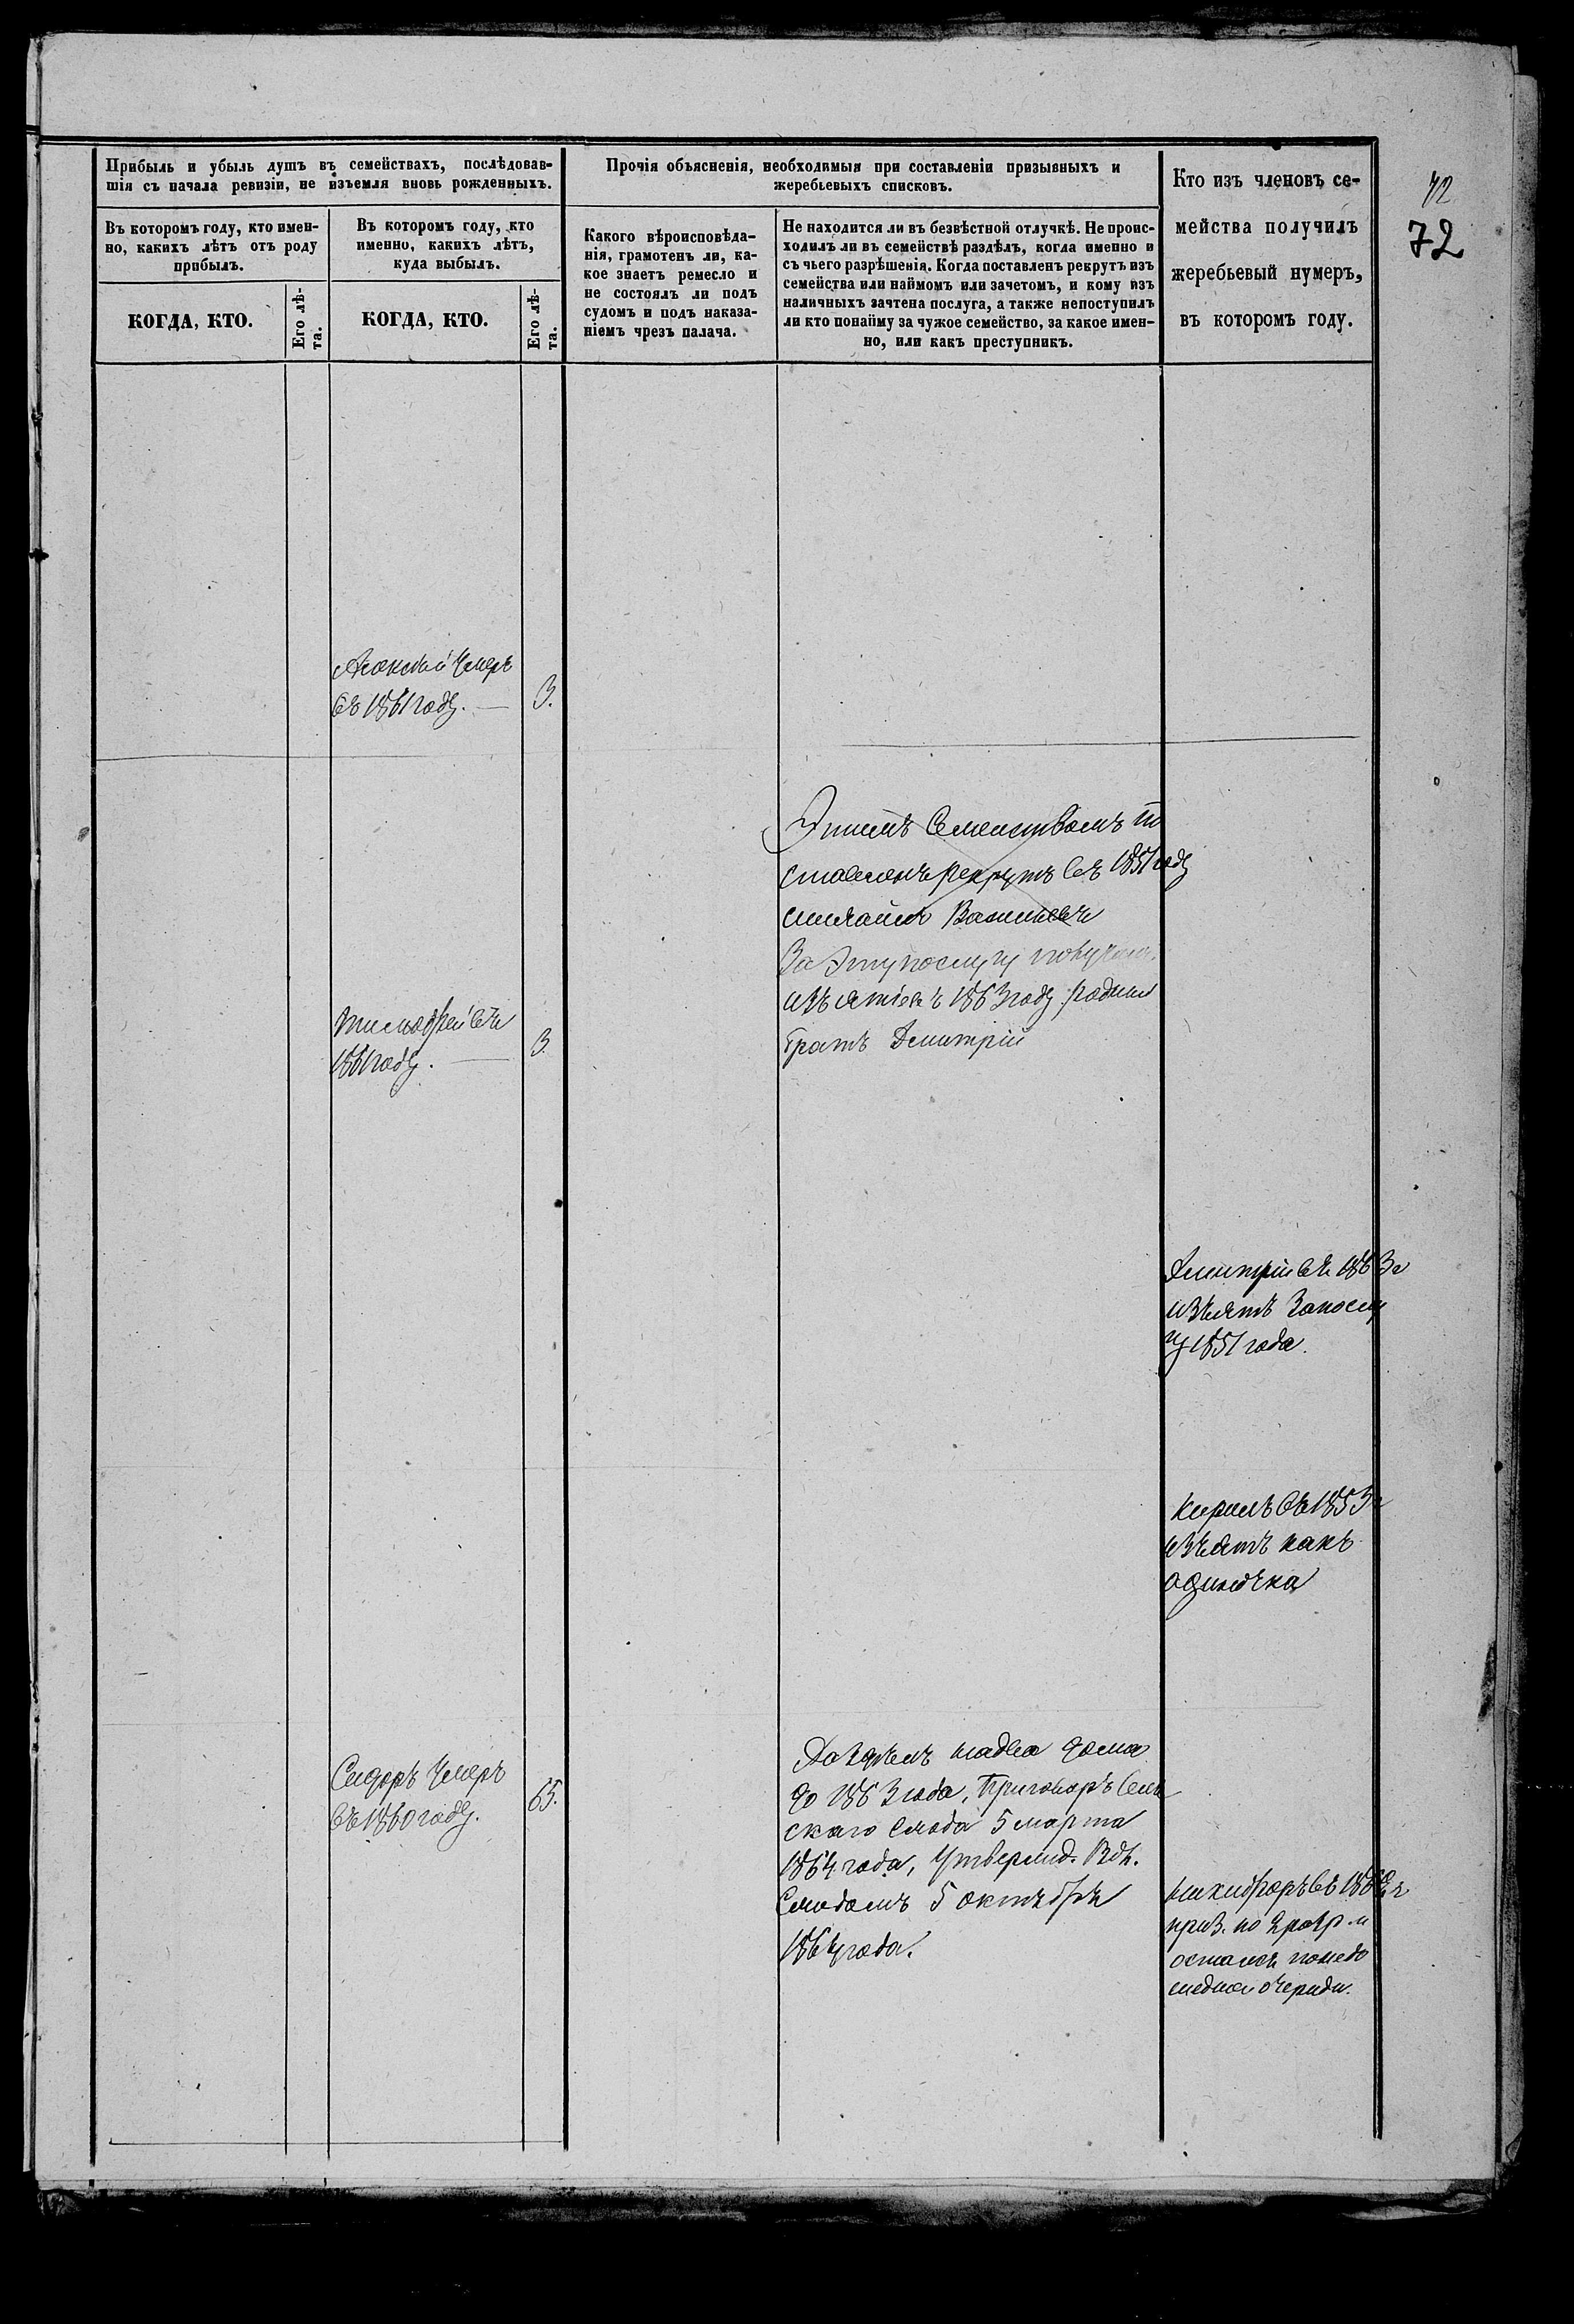 Прибыль и убыль душъ въ семействахъ, послѣдовав-
шія съ начала ревизіи, не изъемля вновь рожденныхъ.
Прочія объясненія, необходимыя при составленіи призывныхъ и
жеребьевыхъ списковъ.
Кто изъ членовъ се-
мейства получилъ
жеребьевый нумеръ,
въ которомъ году.
72
72
Въ которомъ году, кто имен-
но, какихъ лѣтъ отъ роду
прибылъ.
Въ которомъ году, кто
именно, какихъ лѣтъ,
куда выбылъ.
Какого вѣроисповѣда-
нія, грамотенъ ли, ка-
кое знаетъ ремесло и
не состоялъ ли подъ
судомъ и подъ наказа-
ніемъ чрезъ палача.
Не находится ли въ безвѣстной отлучкѣ. Не проис-
ходилъ ли въ семействѣ раздѣлъ, когда именно и
съ чьего разрѣшенія. Когда поставленъ рекрутъ изъ
семейства или наймомъ или зачетомъ, и кому изъ
наличныхъ зачтена послуга, а также непоступилъ
ли кто понайму за чужое семейство, за какое имен-
но, или какъ преступникъ.
КОГДА, КТО.
Его лѣ-
та.
КОГДА, КТО.
Его лѣ-
та.
умеръ
въ 1861 году. — 3.
Этимъ Семействомъ по
ставленъ рекрутъ въ 1851 году
За эту послугу
изъятіе въ 1863 году родной
братъ Дмитрій
Тимофей въ
1861 году. — 3.
Дмитрий въ 1863 г
изъятъ за послу
гу 1851 года.
Кирилъ въ 1853 г
изъятъ какъ
одиночка
Сидоръ умеръ
въ 1860 году. 65.
Раздѣлъ на два дома
до 1863 года, Приговоръ Сель
скаго схода 5 марта
1864 года, Утвержд. Вол.
Сходомъ 5 октября
1864 года.
Никифоръ въ
приз. по 2 разр. и
остался по недо
очереди.